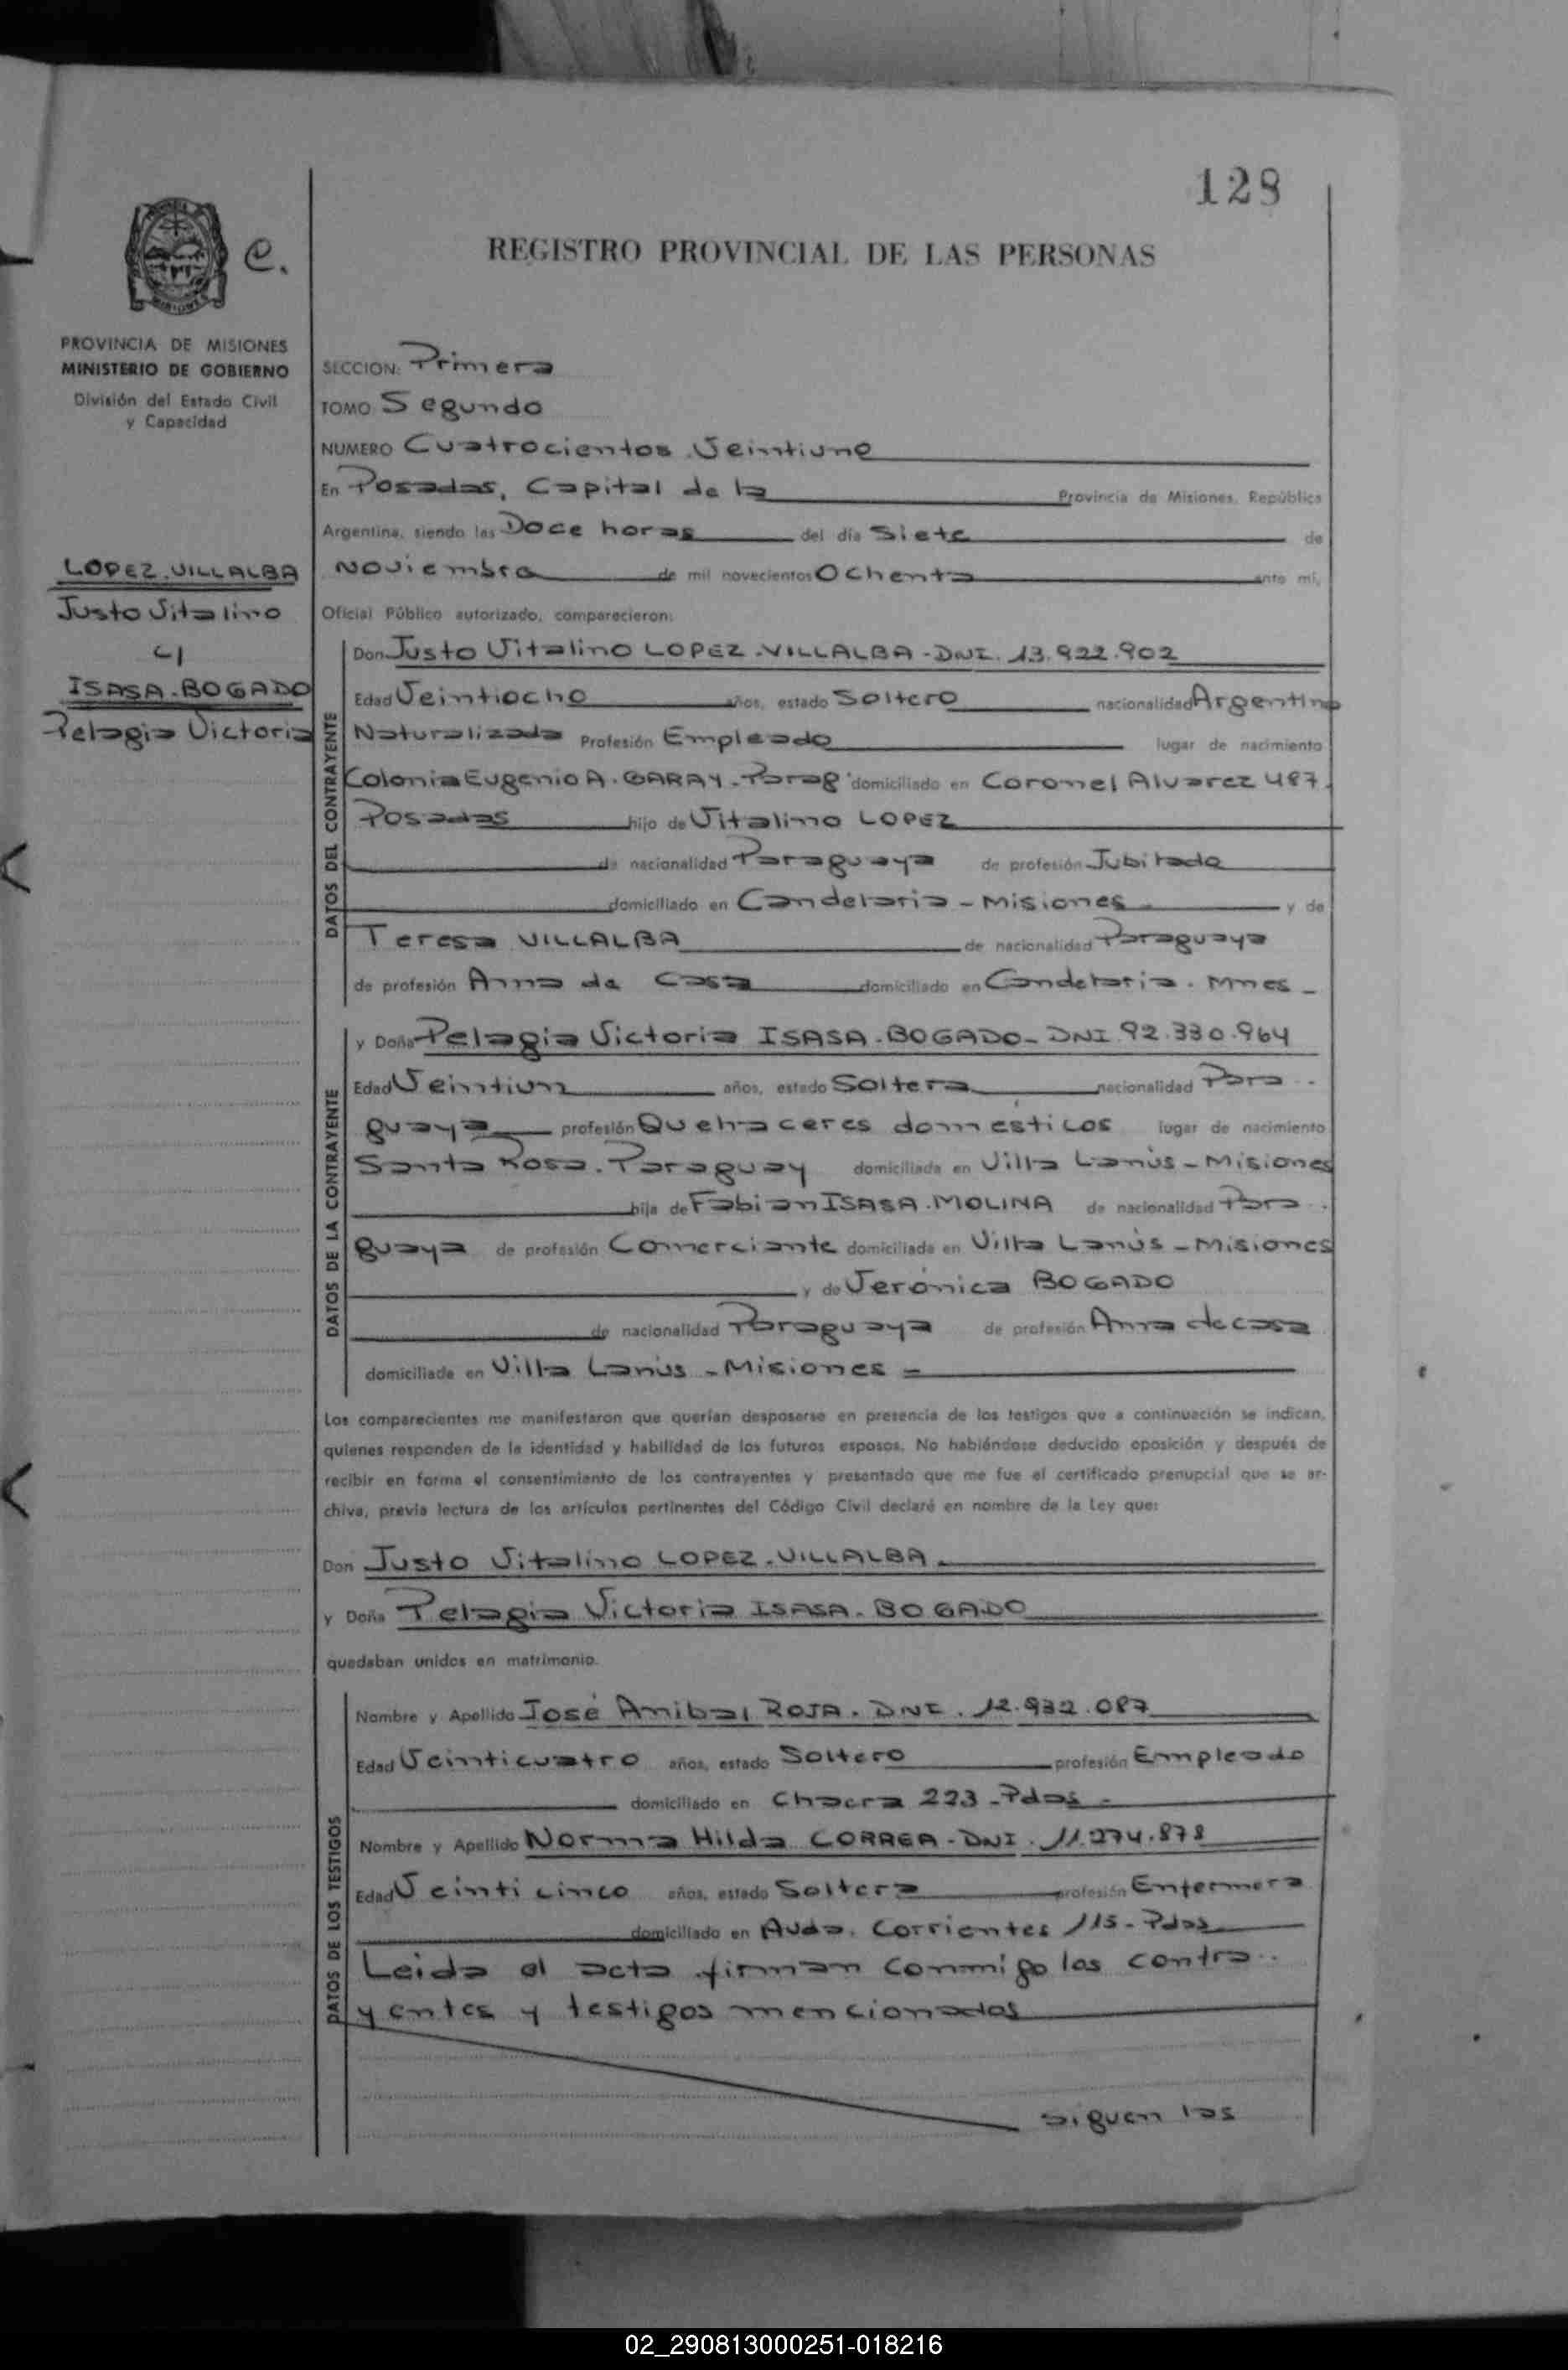 128
REGISTRO PROVINCIAL DE LAS PERSONAS
MISIONES
e.
PROVINCIA DE MISIONES
MINISTERIO DE GOBIERNO
División del Estado Civil
y Capacidad
LOPEZ.VILLALBA
Justo Vitalino
c/
ISASA-BOGADO
Pelagia Victoria
SECCION: Primera
TOMO Segundo
NUMERO Cuatrocientos Veintiuno
En Posadas, Capital de la Provincia de Misiones, República
Argentina, siendo las Doce horas del día Siete de
Noviembre de mil novecientos Ochenta ante mí,
Oficial Público autorizado, comparecieron:
DATOS DEL CONTRAYENTE
Don Justo Vitalino LOPEZ.VILLALBA-DNI. 13.922.902
Edad Veintiocho años, estado Soltero nacionalidad Argentino
Naturalizado Profesión Empleado lugar de nacimiento
Colonia Eugenio A. GARAY-Parag. domiciliado en Coronel Alvarez 487.
Posadas hijo de Vitalino LOPEZ
de nacionalidad Paraguaya de profesión Jubilado
domiciliado en Candelaria - Misiones y de
Teresa VILLALBA de nacionalidad Paraguaya
de profesión Ama de Casa domiciliado en Candelaria. Mnes-
DATOS DE LA CONTRAYENTE
y Doña Pelagia Victoria ISASA-BOGADO-DNI.92.330.964
Edad Veintiun años, estado Soltera nacionalidad Para-
guaya profesión Quehaceres domésticos lugar de nacimiento
Santa Rosa. Paraguay domiciliada en Villa Lanús-Misiones
hija de Fabian ISASA.MOLINA de nacionalidad Para-
guaya de profesión Comerciante domiciliado en Villa Lanús-Misiones
y de Verónica BOGADO
de nacionalidad Paraguaya de profesión Ama de casa
domiciliada en Villa Lanús-Misiones
Los comparecientes me manifestaron que querían desposarse en presencia de los testigos que a continuación se indican,
quienes responden de la identidad y habilidad de los futuros esposos. No habiéndose deducido oposición y después de
recibir en forma el consentimiento de los contrayentes y presentado que me fue el certificado prenupcial que se ar-
chiva, previa lectura de los artículos pertinentes del Código Civil declaré en nombre de la Ley que:
Don Justo Vitalino LOPEZ.VILLALBA.
y Doña Pelagia Victoria ISASA-BOGADO
quedaban unidos en matrimonio.
DATOS DE LOS TESTIGOS
Nombre y Apellido José Anibal ROJA. DNI. 12.932.087
Edad Veinticuatro años, estado Soltero profesión Empleado
domiciliado en Chacra 223-Pdas-
Nombre y Apellido Norma Hilda CORREA-DNI. 11.274.878
Edad Veinticinco años, estado Soltera profesión Enfermera
domiciliado en Avda. Corrientes 115-Pdas
Leida el acta firman conmigo los contra-
yentes y testigos mencionados
siguen las
02_290813000251-018216